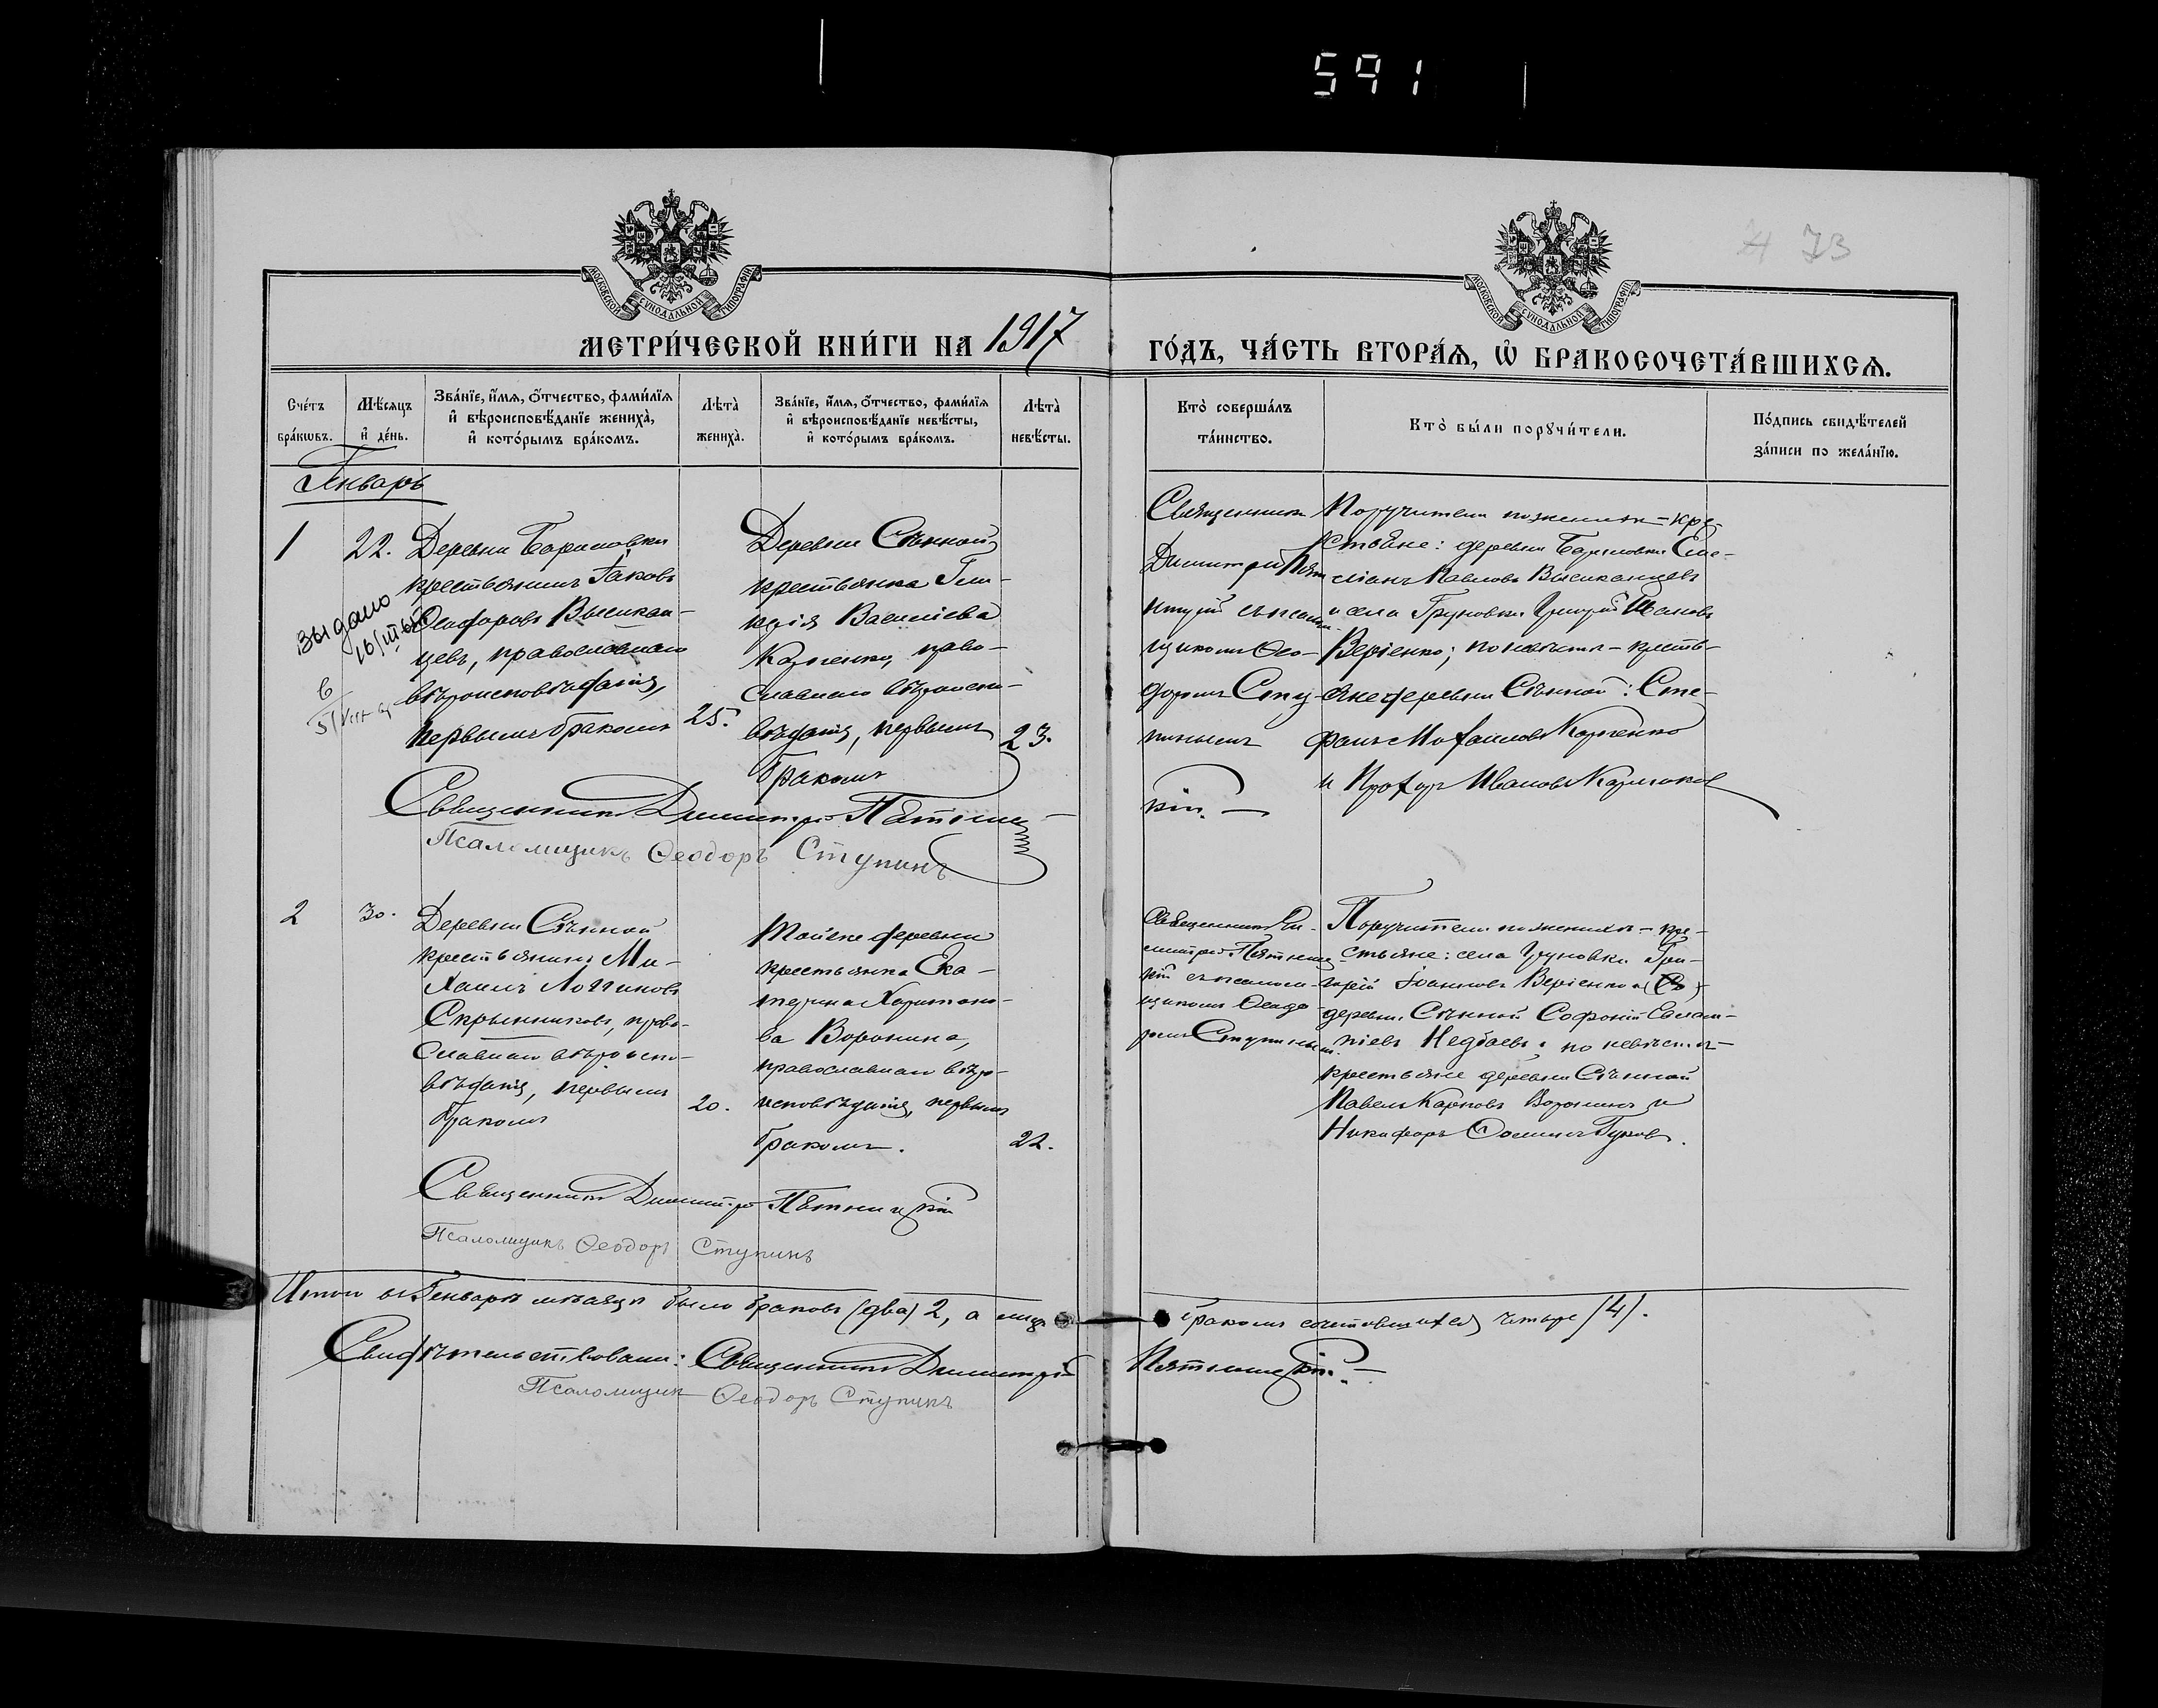 591
73
МОСКОВСКОЙ СѴНОДАЛЬНОЙ ТИПОГРАФІИ
МОСКОВСКОЙ СѴНОДАЛЬНОЙ ТИПОГРАФІИ
МЕТРИ́ЧЕСКОЙ КНИ́ГИ НА 1917
ГО́ДЪ, ЧА́СТЬ ВТОРА́Ѧ, Ѡ БРАКОСОЧЕТА́ВШИХСѦ.
Сче́тъ бра́кѡвъ.
Мѣ́сяцъ и҆ де́нь.
Зва́нїе, и҆́мѧ, ѻ҆́тчество, фами́лїѧ
и҆ вѣроисповѣ́данїе жениха̀,
и҆ кото́рымъ бра́комъ.
Лѣта̀ жениха̀.
Зва́нїе, и҆́мѧ, ѻ҆́тчество, фами́лїѧ
и҆ вѣроисповѣ́данїе невѣ́сты,
и҆ кото́рымъ бра́комъ.
Лѣта̀ невѣ́сты.
Кто̀ соверша́лъ
та́инство.
Кто̀ бы́ли порꙋчи́тели.
По́дпись свидѣ́телей
за́писи по жела́нїю.
Январь
1
22.
Деревни
крестьянинъ Іаковъ
цевъ, православнаго
вѣроисповѣданія,
первымъ бракомъ
25.
выдано
Деревни Сѣнной
крестьянка
Василіева
право-
славнаго вѣроиспо-
вѣданія, первымъ
бракомъ
23.
Священникъ
Димитрій Пят-
ницкій съ псалом-
щикомъ Ѳео-
доромъ Сту-
пинымъ
Поручители по женихѣ – кре-
стьяне: деревни
Павловъ
и села Груновки Григорій Іоановъ
Веріенко; по невѣстѣ – кресть-
яне деревни Сѣнной: Сте-
фанъ Михаиловъ
и Прохоръ Ивановъ
Священникъ Димитрій Пятниц
кій.
Псаломщикъ Ѳеодоръ Ступинъ
2
30.
Деревни Сѣнной
крестьянинъ Ми-
хаилъ Логгиновъ
Скрынниковъ, право-
славнаго вѣроиспо-
вѣданія, первымъ
бракомъ
20.
Той же деревни
крестьянка Ека-
терина Харитоно-
ва Воронина,
православнаго вѣро-
исповѣданія, первымъ
бракомъ.
22.
Священникъ Ди-
митрій Пятниц-
кій съ псалом-
щикомъ Ѳеодо-
ромъ Ступинымъ.
Поручители по женихѣ – кре-
стьяне: села Груновки Гри-
горій Іоанновъ Веріенко и
деревни Сѣнной Софоній Евлам-
піевъ Недбаевъ; по невѣстѣ –
крестьяне деревни Сѣнной
Павелъ Карповъ Воронинъ и
Никифоръ Ѳоминъ Гуковъ.
Священникъ Димитрій Пятницкій
Псаломщикъ Ѳеодоръ Ступинъ
Итого въ Генварѣ мѣсяцѣ было браковъ (два) 2, а лицъ бракомъ сочетавшихся четыре (4).
Свидѣтельствовали: Священникъ Димитрій Пятницкій.
Псаломщикъ Ѳеодоръ Ступинъ